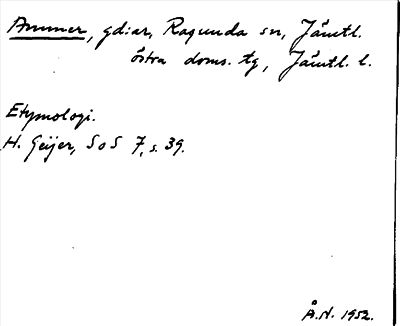 Ammer, gdiar, Ragunda sn, Jämtl.
östra doms. tg, Jämtl. l.
Etymologi.
H. Geijer, SoS 7, s. 39.
Å.N. 1952.